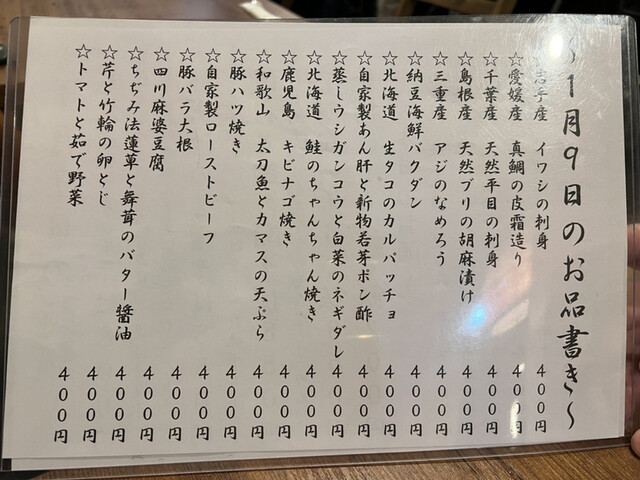 ～1月9日のお品書き～
岩手産 イワシの刺身 400円
☆愛媛産 真鯛の皮霜造り 400円
☆千葉産 天然平目の刺身 400円
☆島根産 天然ブリの胡麻漬け 400円
☆三重産 アジのなめろう 400円
☆納豆海鮮バクダン 400円
☆北海道 生タコのカルパッチョ 400円
☆自家製あん肝と新物若芽ポン酢 400円
☆蒸しウシガンコウと白菜のネギダレ 400円
☆北海道 鮭のちゃんちゃん焼き 400円
☆鹿児島 キビナゴ焼き 400円
☆和歌山 太刀魚とカマスの天ぷら 400円
☆豚ハツ焼き 400円
☆自家製ローストビーフ 400円
☆豚バラ大根 400円
☆四川麻婆豆腐 400円
☆ちぢみ法蓮草と舞茸のバター醤油 400円
☆芹と竹輪の卵とじ 400円
☆トマトと茹で野菜 400円